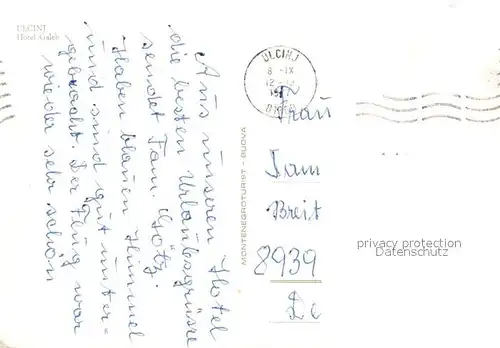 ULCINJ
Hotel Galeb
Aus unseren Hotel
die besten Urlaubsgrüsse
sendet Fam. Götz.
Haben blauen Himmel
und sind gut unter-
gebracht. Der Flug war
wieder sehr schön
MONTENEGROTURIST - BUDVA
ULCINJ
8 -IX
12
Frau
Fam
Breit
8939
De
privacy protection
Datenschutz